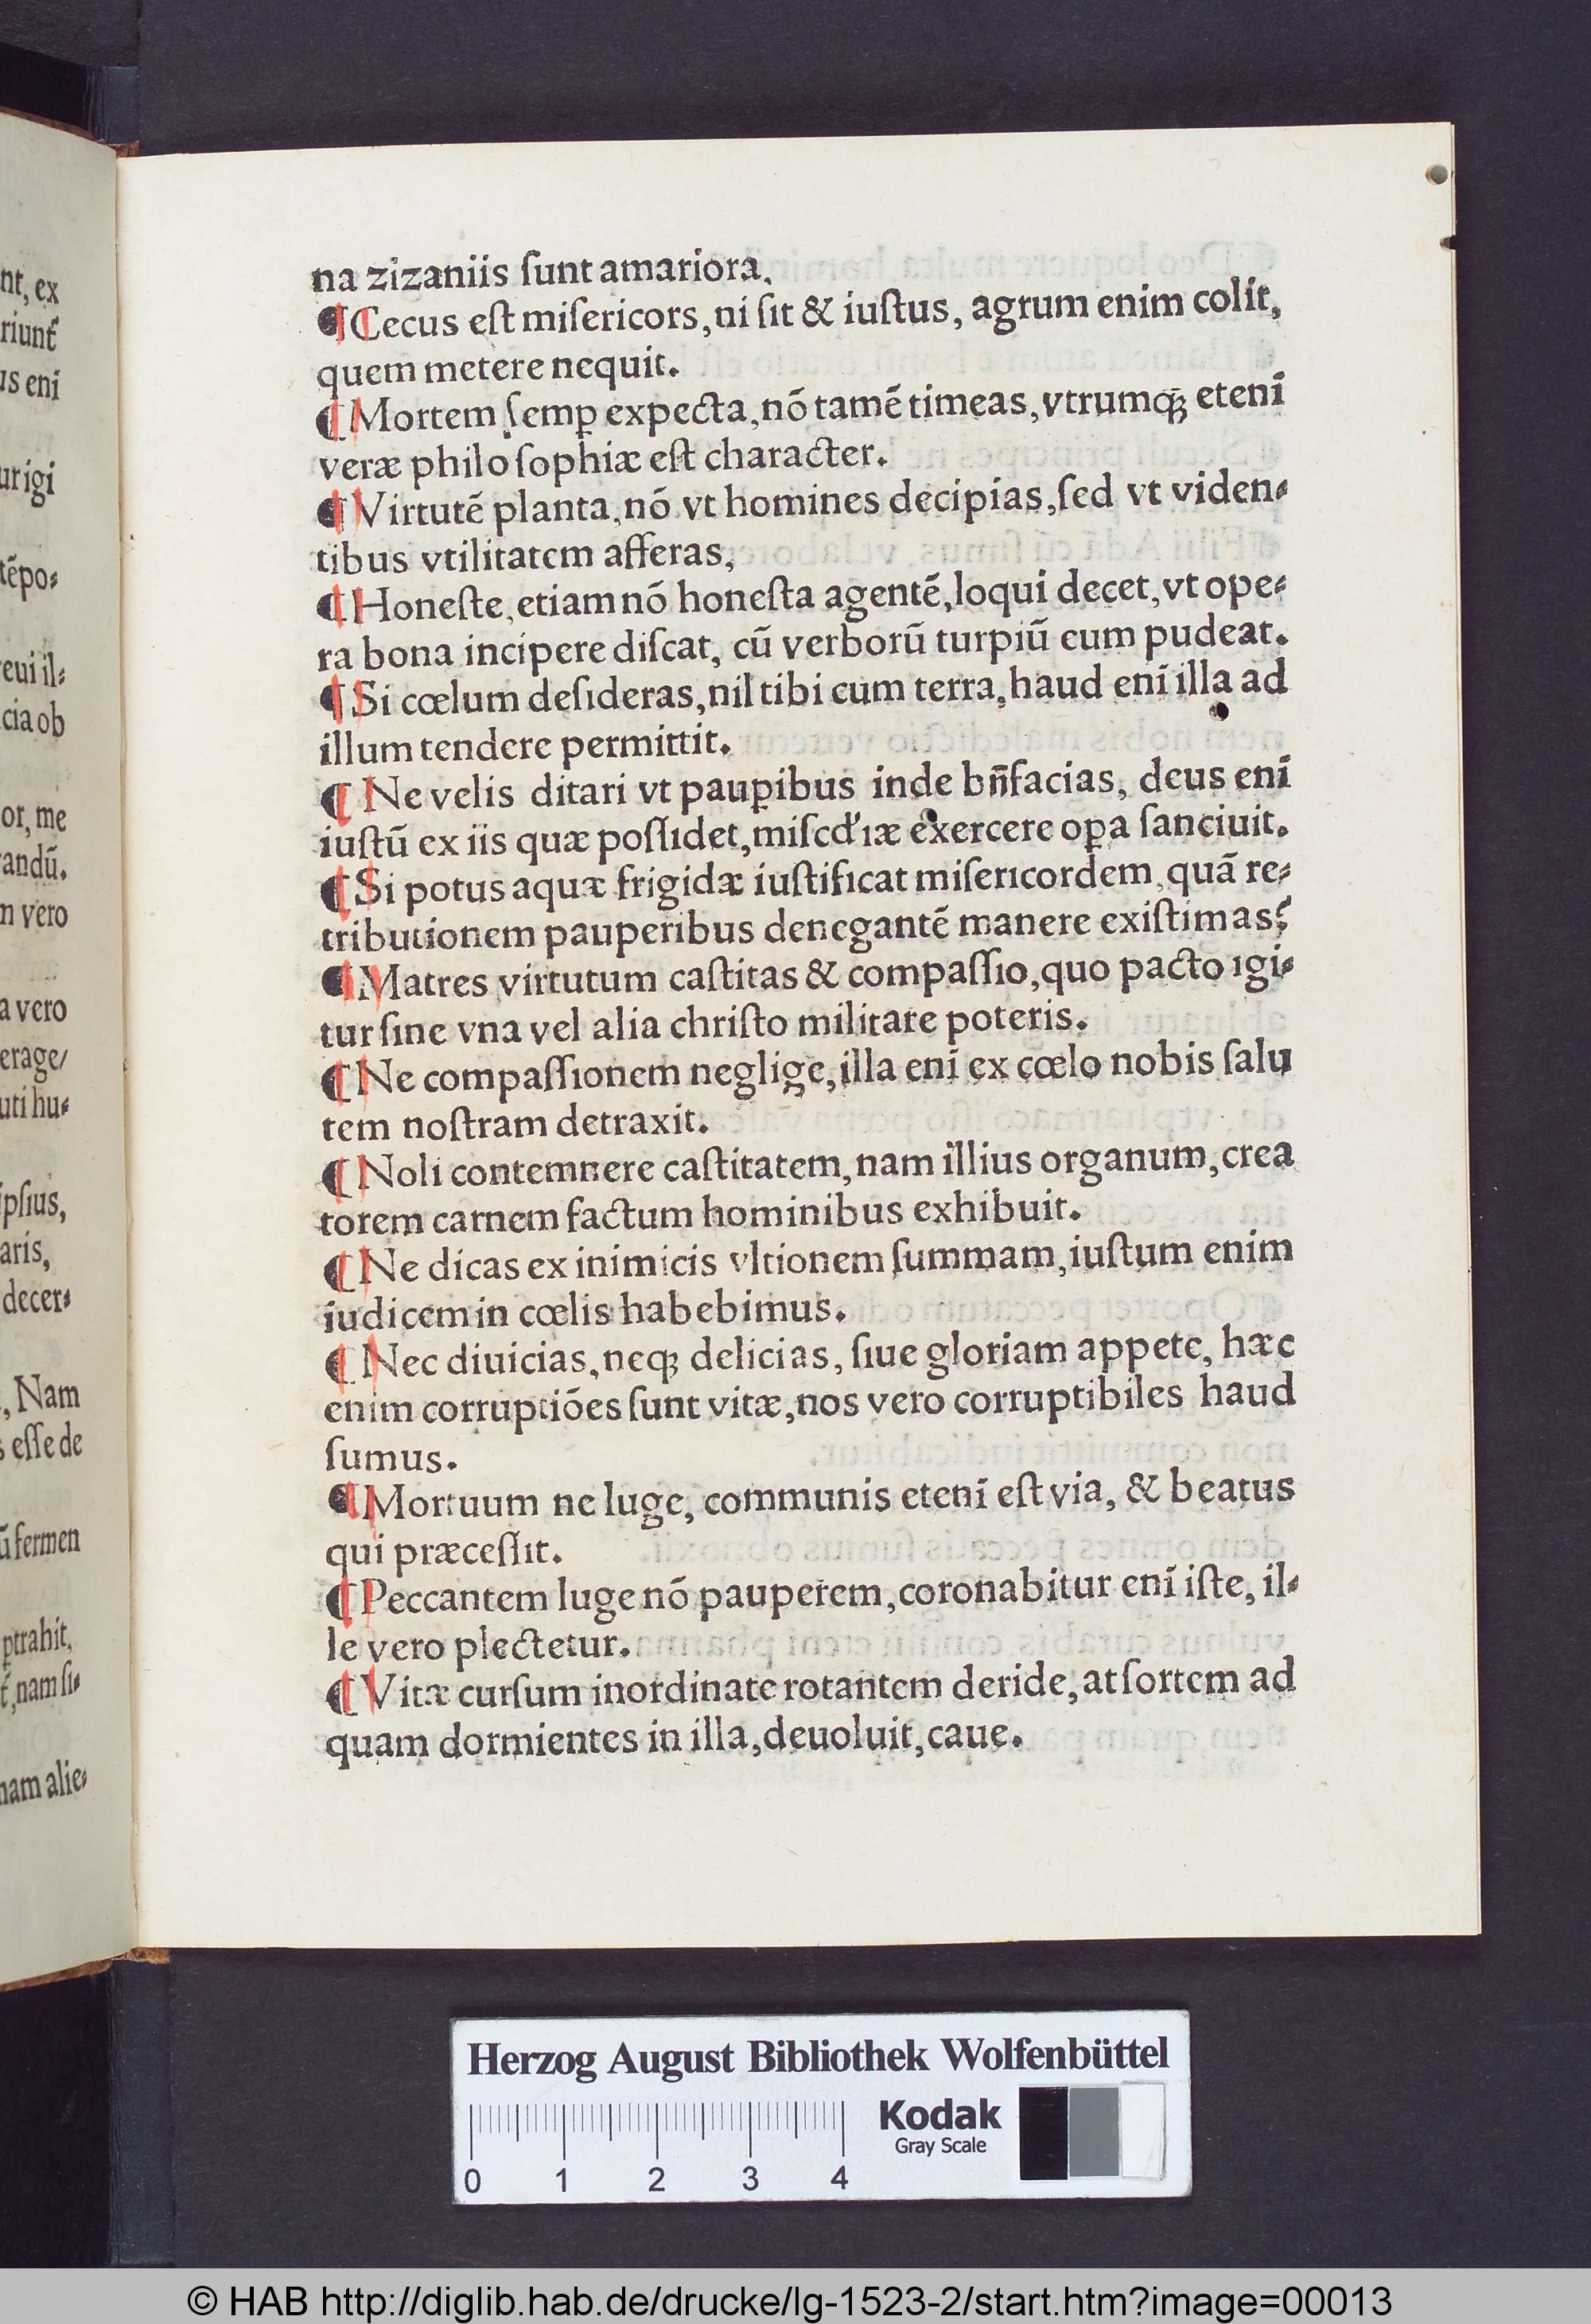 nt, ex
riunt᷑
us enī
ur igi
tēpo⸗
eui il⸗
cia ob
or, me
andū.
n vero
a vero
erage/
uti hu⸗
ipsius,
aris,
decer⸗
, Nam
s eſſe de
ū fermen
ꝑtrahit,
nam ſi⸗
nam alie⸗
na zizaniis ſunt amariora.
¶ Cecus eſt miſericors, ni ſit & iuſtus, agrum enim colit,
quem metere nequit.
¶ Mortem ſemꝑ expecta, nō tamē timeas, vtrumqꝫ etenī
veræ philoſophiæ eſt character.
¶ Virtutē planta, nō vt homines decipias, ſed vt viden⸗
tibus vtilitatem afferas,
¶ Honeſte, etiam nō honeſta agentē, loqui decet, vt ope⸗
ra bona incipere diſcat, cū verborū turpiū eum pudeat.
¶ Si cœlum deſideras, nil tibi cum terra, haud enī illa ad
illum tendere permittit.
¶ Ne velis ditari vt pauꝑibus inde bn̄facias, deus enī
iuſtū ex iis quæ poſſidet, miſcd'iæ exercere oꝑa ſanciuit.
¶ Si potus aquæ frigidæ iuſtificat miſericordem, quā re⸗
tributionem pauperibus denegantē manere exiſtimas?
¶ Matres virtutum caſtitas & compaſſio, quo pacto igi⸗
tur ſine vna vel alia chriſto militare poteris.
¶ Ne compaſſionem neglige, illa enī ex cœlo nobis ſalu
tem noſtram detraxit.
¶ Noli contemnere caſtitatem, nam illius organum, crea
torem carnem factum hominibus exhibuit.
¶ Ne dicas ex inimicis vltionem ſummam, iuſtum enim
iudicem in cœlis habebimus.
¶ Nec diuicias, neqꝫ delicias, ſiue gloriam appete, hæc
enim corruptiōes ſunt vitæ, nos vero corruptibiles haud
ſumus.
¶ Mortuum ne luge, communis etenī eſt via, & beatus
qui præceſſit.
¶ Peccantem luge nō pauperem, coronabitur enī iſte, il⸗
le vero plectetur.
¶ Vitæ curſum inordinate rotantem deride, at ſortem ad
quam dormientes in illa, deuoluit, caue.
Herzog August Bibliothek Wolfenbüttel
Kodak
Gray Scale
0 1 2 3 4
© HAB http://diglib.hab.de/drucke/lg-1523-2/start.htm?image=00013